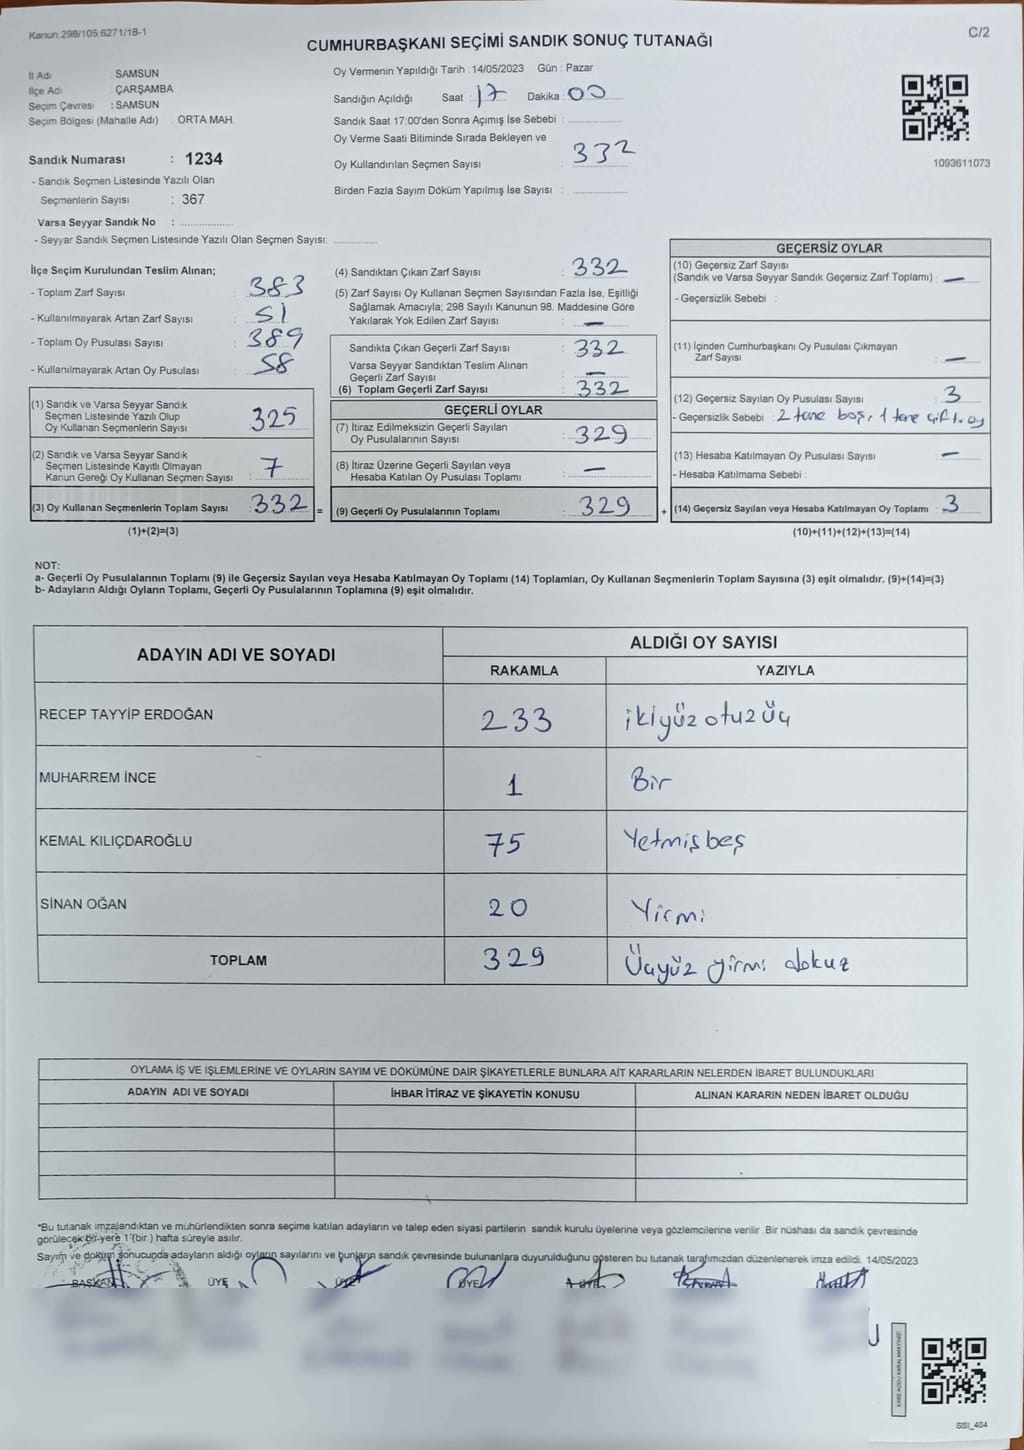 Kanun 298/105,6271/18-1
C/2
CUMHURBAŞKANI SEÇİMİ SANDIK SONUÇ TUTANAĞI
İl Adı : SAMSUN
İlçe Adı : ÇARŞAMBA
Seçim Çevresi : SAMSUN
Seçim Bölgesi (Mahalle Adı) : ORTA MAH.
Sandık Numarası : 1234
- Sandık Seçmen Listesinde Yazılı Olan
Seçmenlerin Sayısı : 367
Varsa Seyyar Sandık No : ................
- Seyyar Sandık Seçmen Listesinde Yazılı Olan Seçmen Sayısı: ............
Oy Vermenin Yapıldığı Tarih : 14/05/2023 Gün : Pazar
Sandığın Açıldığı Saat : 17 Dakika : 00
Sandık Saat 17:00'den Sonra Açımış İse Sebebi : ................
Oy Verme Saati Bitiminde Sırada Bekleyen ve
Oy Kullandırılan Seçmen Sayısı : 332
Birden Fazla Sayım Döküm Yapılmış İse Sayısı : ................
1093611073
İlçe Seçim Kurulundan Teslim Alınan;
- Toplam Zarf Sayısı : 383
- Kullanılmayarak Artan Zarf Sayısı : 51
- Toplam Oy Pusulası Sayısı : 389
- Kullanılmayarak Artan Oy Pusulası : 58
(1) Sandık ve Varsa Seyyar Sandık
Seçmen Listesinde Yazılı Olup
Oy Kullanan Seçmenlerin Sayısı : 325
(2) Sandık ve Varsa Seyyar Sandık
Seçmen Listesinde Kayıtlı Olmayan
Kanun Gereği Oy Kullanan Seçmen Sayısı : 7
(3) Oy Kullanan Seçmenlerin Toplam Sayısı : 332 =
(1)+(2)=(3)
(4) Sandıktan Çıkan Zarf Sayısı : 332
(5) Zarf Sayısı Oy Kullanan Seçmen Sayısından Fazla İse, Eşitliği
Sağlamak Amacıyla; 298 Sayılı Kanunun 98. Maddesine Göre
Yakılarak Yok Edilen Zarf Sayısı : —
Sandıkta Çıkan Geçerli Zarf Sayısı : 332
Varsa Seyyar Sandıktan Teslim Alınan
Geçerli Zarf Sayısı : —
(6) Toplam Geçerli Zarf Sayısı : 332
GEÇERLİ OYLAR
(7) İtiraz Edilmeksizin Geçerli Sayılan
Oy Pusulalarının Sayısı : 329
(8) İtiraz Üzerine Geçerli Sayılan veya
Hesaba Katılan Oy Pusulası Toplamı : —
(9) Geçerli Oy Pusulalarının Toplamı : 329 +
GEÇERSİZ OYLAR
(10) Geçersiz Zarf Sayısı
(Sandık ve Varsa Seyyar Sandık Geçersiz Zarf Toplamı) : —
- Geçersizlik Sebebi :
(11) İçinden Cumhurbaşkanı Oy Pusulası Çıkmayan
Zarf Sayısı : —
(12) Geçersiz Sayılan Oy Pusulası Sayısı : 3
- Geçersizlik Sebebi : 2 tane boş, 1 tane çift oy
(13) Hesaba Katılmayan Oy Pusulası Sayısı : —
- Hesaba Katılmama Sebebi :
(14) Geçersiz Sayılan veya Hesaba Katılmayan Oy Toplamı : 3
(10)+(11)+(12)+(13)=(14)
NOT:
a- Geçerli Oy Pusulalarının Toplamı (9) ile Geçersiz Sayılan veya Hesaba Katılmayan Oy Toplamı (14) Toplamları, Oy Kullanan Seçmenlerin Toplam Sayısına (3) eşit olmalıdır. (9)+(14)=(3)
b- Adayların Aldığı Oyların Toplamı, Geçerli Oy Pusulalarının Toplamına (9) eşit olmalıdır.
ADAYIN ADI VE SOYADI ALDIĞI OY SAYISI
RAKAMLA YAZIYLA
RECEP TAYYİP ERDOĞAN 233 ikiyüz otuz üç
MUHARREM İNCE 1 Bir
KEMAL KILIÇDAROĞLU 75 Yetmiş beş
SİNAN OĞAN 20 Yirmi
TOPLAM 329 Üçyüz yirmi dokuz
OYLAMA İŞ VE İŞLEMLERİNE VE OYLARIN SAYIM VE DÖKÜMÜNE DAİR ŞİKAYETLERLE BUNLARA AİT KARARLARIN NELERDEN İBARET BULUNDUKLARI
ADAYIN ADI VE SOYADI İHBAR İTİRAZ VE ŞİKAYETİN KONUSU ALINAN KARARIN NEDEN İBARET OLDUĞU
*Bu tutanak imzalandıktan ve mühürlendikten sonra seçime katılan adayların ve talep eden siyasi partilerin sandık kurulu üyelerine veya gözlemcilerine verilir. Bir nüshası da sandık çevresinde
görülecek bir yere 1 (bir) hafta süreyle asılır.
Sayım ve döküm sonucunda adayların aldığı oyların sayılarını ve bunların sandık çevresinde bulunanlara duyurulduğunu gösteren bu tutanak tarafımızdan düzenlenerek imza edildi. 14/05/2023
BAŞKAN ÜYE ÜYE ÜYE ÜYE
KARE KODU KARALAMAYINIZ!
SSI_404